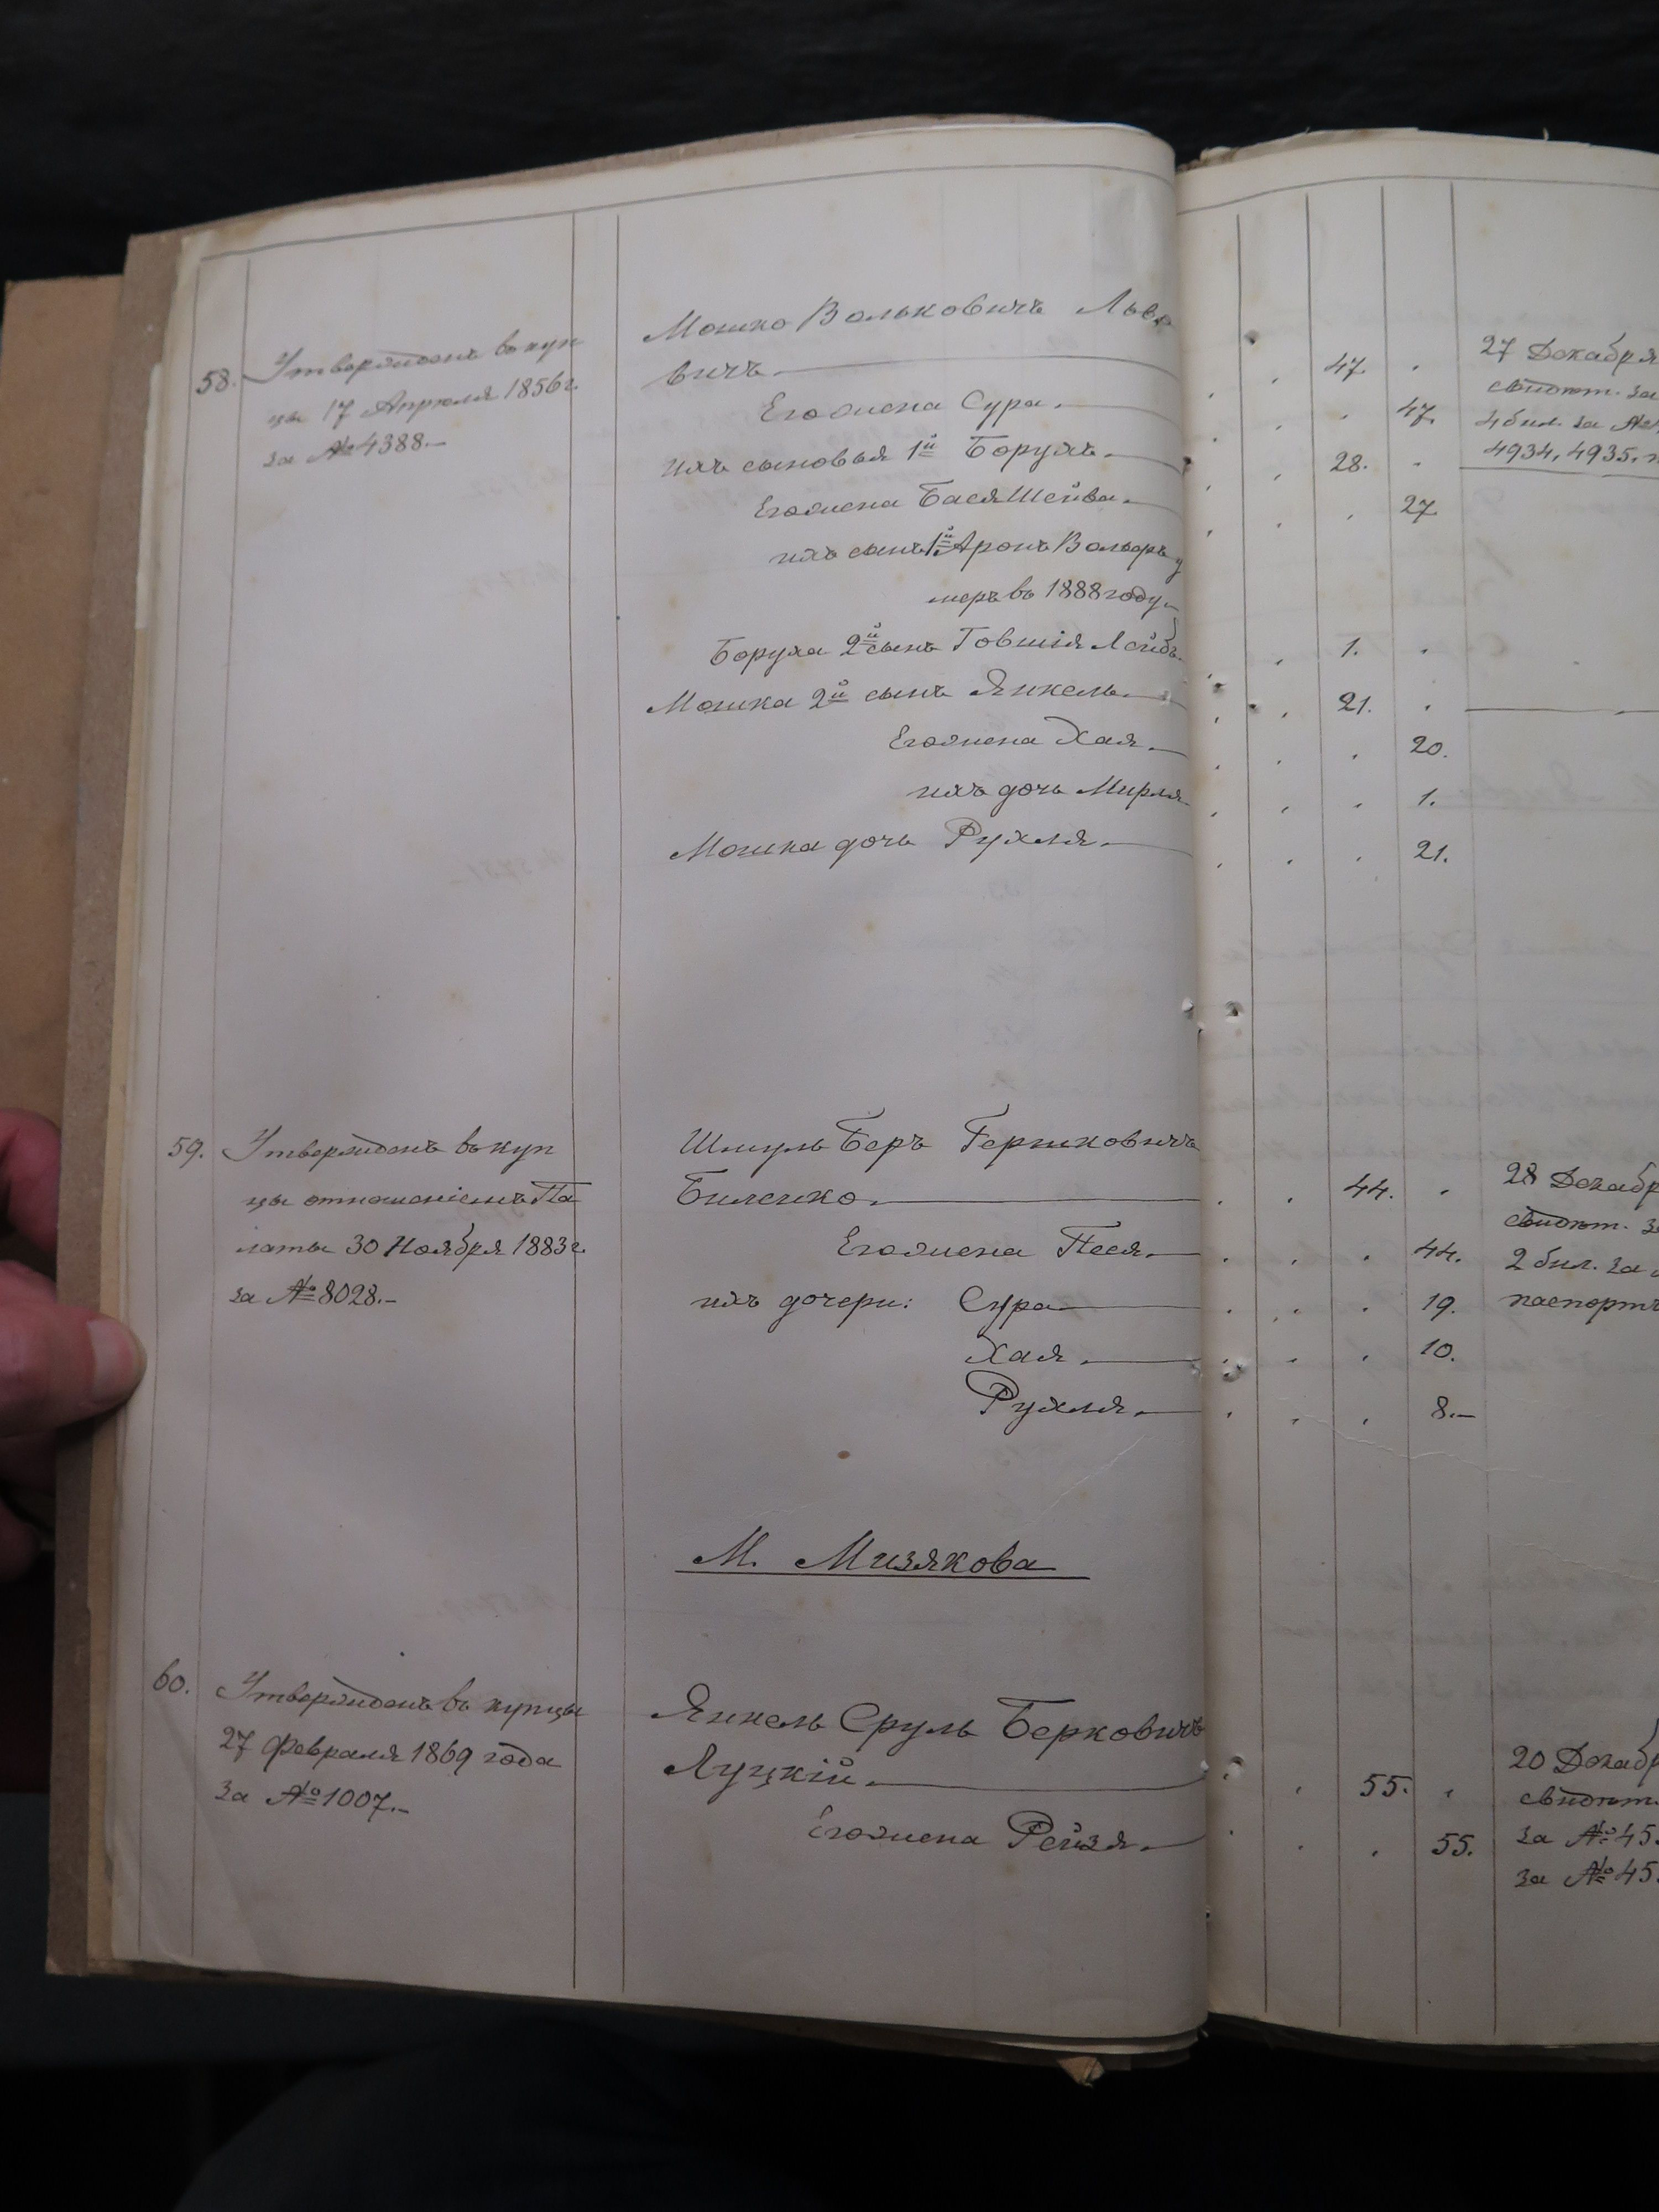 58. Утвержденъ въ куп
цы 17 Апрѣля 1856 г.
за № 4388.—
Мошко Вольковичъ Льво
вичъ.— 47.
Его жена Сура.— 47.
ихъ сыновья 1й Борухъ.— 28.
Его жена Бася Шейва.— 27.
ихъ сынъ 1й Аронъ Вольфъ у
меръ въ 1888 году.—
Боруха 2й сынъ Говшія Лейбъ. 1.
Мошка 2й сынъ Янкель.— 21.
Его жена Хая.— 20.
ихъ дочь Мирля. 1.
Мошка дочь Рухля.— 21.
27 Декабря
свидѣт. за
4 бил. за №
4934, 4935.
59. Утвержденъ въ куп
цы отношеніемъ Па
латы 30 Ноября 1883 г.
за № 8028.—
Шмуль Беръ Гершковичъ
Биленко.— 44.
Его жена Песя.— 44.
ихъ дочери: Сура— 19.
Хая.— 10.
Рухля.— 8.—
28 Декабр
свидѣт. за
2 бил. за
паспортъ
М. Мизякова
60. Утвержденъ въ купцы
27 Февраля 1869 года
за № 1007.—
Янкель Сруль Берковичъ
Луцкій.— 55.
Его жена Рейзя.— 55.
20 Декабр
свидѣт.
за № 45
за № 45